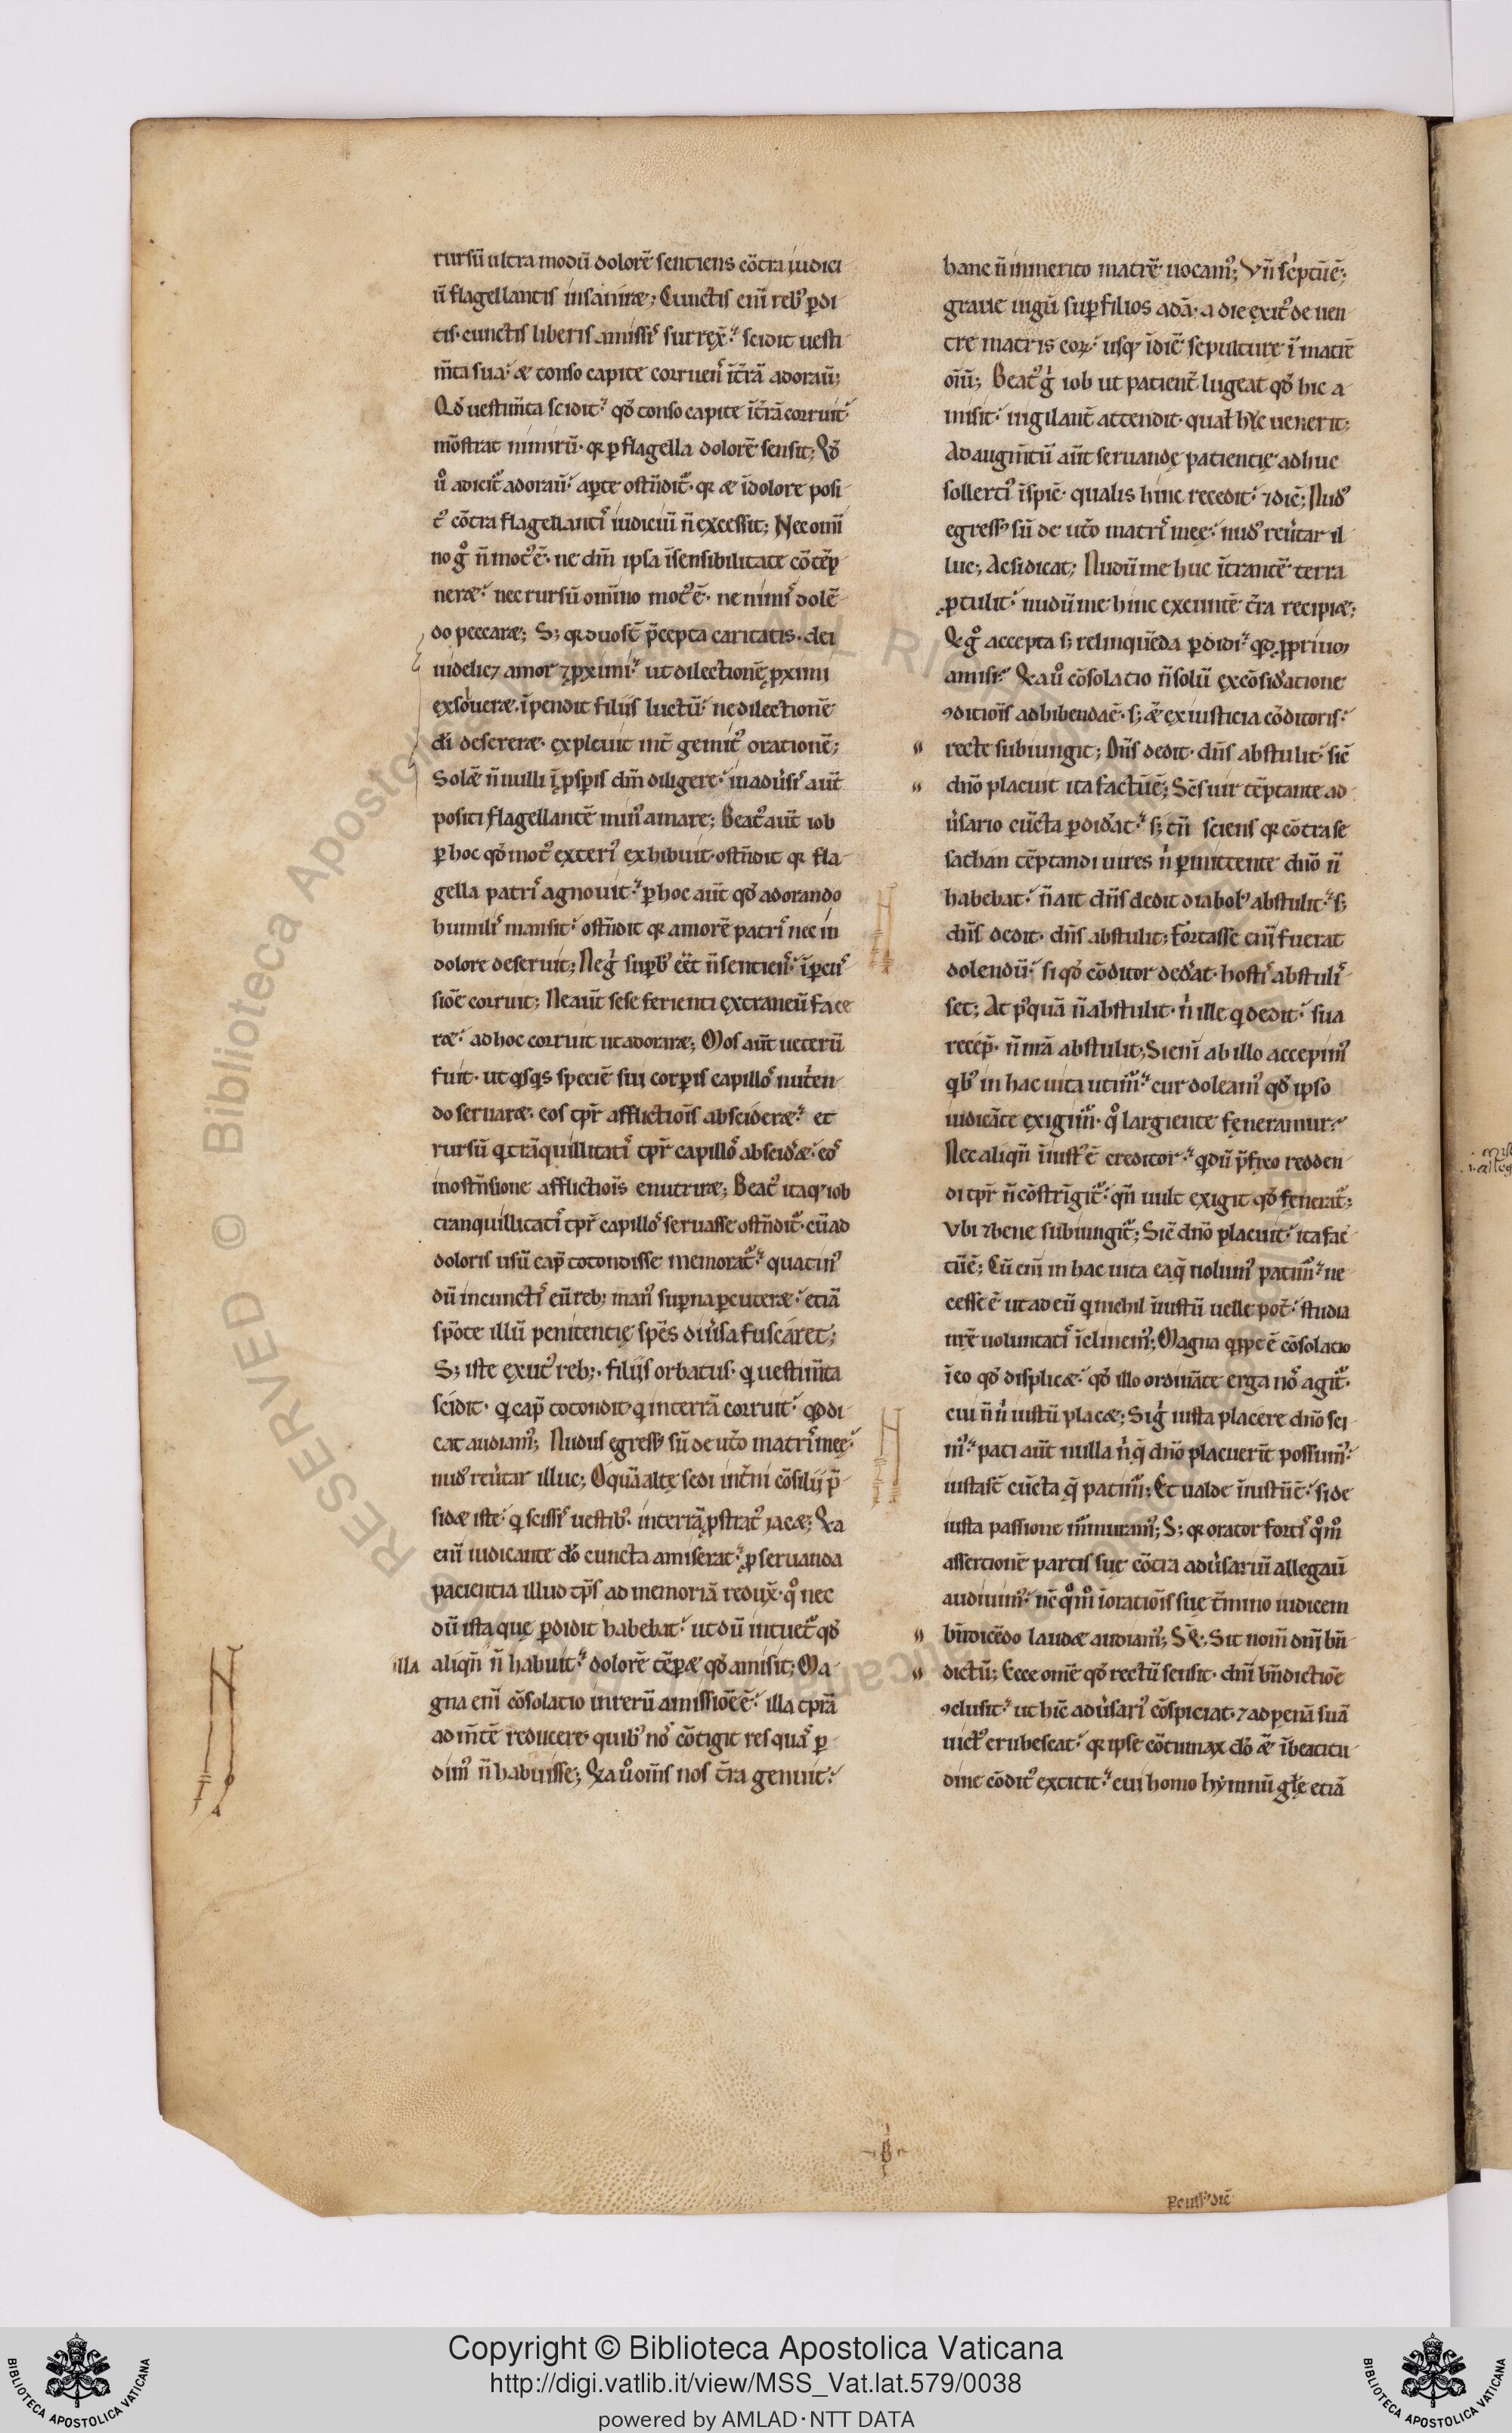 rursū ultra modū dolorē sentiens cōtra iudici
ū flagellantis insanire; Cunctis eni᷑ reb᷒ ꝑdi
tis· cunctis liberis amissis surrex̄·᷑ scidit uesti
m̄ta sua·᷑ & tonso capite corruens īt̄rā adorau̅;
Qd̓ uestim̄ta scidit·᷑ qd̓ tonso capite īt̄rā corruit·᷑
mōstrat nimirū· qꝛ ꝑ flagella dolorē sensit; Qd̓
ů adicit᷑ adorau̅·᷑ aꝑte ostn̄dit᷑· qꝛ & ī dolore posi
t᷒ cōtra flagellantis iudiciū n̄ excessit; Nec omī
no gͦ n̄ mot᷒ ē· ne dm̄ ipsa īsensibilitate cōtēp
neret·᷑ nec rursū om̄ino mot᷒ ē· ne nimis dolē
do peccaret; S; qꝛ duo st̄ p̄cepta caritatis· dei
uidelicꝫ amor ⁊ ꝓximi·᷑ ut dilectionē ꝓximi
exsolueret· īpendit filiis luctū·᷑ ne dilectionē
di̅ desereret· expleuit int̄ gemit᷒ orationē;
Solent nulli ī ꝓsꝑis dm̄ diligere·᷑ in adu̓sis aut̄
positi flagellantē min᷒ amare; Beat᷒ aut̄ iob
ꝑ hoc qd̓ mot᷒ exteri᷒ exhibuit· ostn̄dit qꝛ fla
gella patris agnouit·᷑ ꝑ hoc aut̄ qd̓ adorando
humilis mansit·᷑ ostn̄dit qꝛ amorē patris nec in
dolore deseruit; Ne gͥ suꝑb᷒ eēt n̄ sentiens·᷑ ī ꝑcus
siōe corruit; Ne aut̄ sese ferienti extraneū face
ret·᷑ ad hoc corruit ut adoraret; Mos aut̄ ueterū
fuit· ut qͥsqͥs speciē sui corꝑis capillos nut̓en
do seruaret· eos tpr̄ afflictiōis abscideret·᷑ et
rursū qͥ trāquillitatis tpr̄ capillos abscid̓et·᷑ eos
in ostn̄sione afflictiōis enutriret; Beat᷒ itaqꝫ iob
tranquillitatis tpr̄ capillos seruasse ostn̄dit᷑· cū ad
doloris usū cap̄ totondisse memorat᷑·᷑ quatin᷒
dū in cunctis eū reb; man᷒ suꝑna ꝑcuteret·᷑ etiā
spōte illū penitentię spēs diu̓sa fuscaret;
S; iste exut᷒ reb;· filiis orbatus· qͥ uestim̄ta
scidit· qͥ cap̄ totondit· qͥ in terrā corruit·᷑ qͥd di
cat audiam᷒; Nudus egress᷒ sū de ut̓o matris meę·᷑
nud᷒ reu̓tar illuc; O quā alte sedi int̄ni cōsilii p̄
sidet iste·᷑ qͥ scissis uestib᷒· in terrā ꝓstrat᷒ iacet; Qa
eni̅ iudicante dō cuncta amiserat·᷑ ꝓ seruanda
pacientia illud tp̄s ad memoriā redux̄· qͦ nec
dū ista que ꝑdidit habebat·᷑ ut dū intuet᷑ qd̓
illa aliqn̄ n̄ habuit·᷑ dolorē tēꝑet qd̓ amisit; Ma
gna eni̅ cōsolatio in rerū amissiōe ē·᷑ illa tp̄ra
ad m̄tē reducere· quib᷒ nos cōtigit res quas ꝑ
dim᷒ n̄ habuisse; Qa ů om̄s nos t̄ra genuit·᷑
hanc n̄ inmerito matrē uocam᷒; Vn̄ sc̓ptū ē;
graue iugū suꝑ filios adā· a die exit᷒ de uen
tre matris eoꝝ·᷑ usqꝫ ī diē sepulture ī matrē
oīū; Beat᷒ gͥ iob ut patient̄ lugeat qd̓ hic a
misit·᷑ uigilant̄ attendit· qualis hic uenerit;
Ad augm̄tū aut̄ seruandę patientię adhuc
sollerti᷒ īspic̄· qualis hinc recedit·᷑ ⁊ dic̄; Nud᷒
egress᷒ sū de ut̓o matris meę·᷑ nud᷒ reu̓tar il
luc; Ac si dicat; Nudū me huc ītrantē terra
ꝓtulit·᷑ nudū me hinc exeuntē t̄ra recipiet;
Qͥ gͦ accepta s; relinquēda ꝑdidi·᷑ qͥd ꝓpriuꝫ
amisi·᷑ Qa ů cōsolatio n̄ solū ex cōsid̓atione
ↄditiōis adhibenda ē· s; & ex iusticia cōditoris·᷑
recte subiungit; Dn̄s dedit· dn̄s abstulit·᷑ sic̄
dn̄o placuit ita factū ē; Sc̄s uir tēptante ad
u̓sario cūcta ꝑdid̓at·᷑ s; tn̄ sciens qꝛ cōtra se
sathan tēptandi uires nͥ ꝑmittente dn̄o n̄
habebat·᷑ n̄ ait dn̄s dedit diabol᷒ abstulit·᷑ s;
dn̄s dedit· dn̄s abstulit; Fortasse eni̅ fuerat
dolendū·᷑ si qd̓ cōditor ded̓at· hostis abstulis
set; At p᷒quā n̄ abstulit· nͥ ille qͥ dedit·᷑ sua
recep̄· n̄ nr̄a abstulit; Si eni̅ ab illo accepim᷒
qͥb᷒ in hac uita utim᷑·᷑ cur doleam᷒ qd̓ ipso
iudicāte exigim᷑· qͦ largiente feneramur·᷑
Nec aliqn̄ īiust᷒ ē creditor·᷑ qͥ dū p̄fixo redden
di tpr̄ n̄ cōstrīgit᷑·᷑ qn̄ uult exigit qd̓ fenerat᷑;
Vbi ⁊ bene subiungit᷑; Sic̄ dn̄o placuit·᷑ ita fac
tū ē; Cū eni̅ in hac uita ea q̄ nolum᷒ patim᷑·᷑ ne
cesse ē ut ad eū qͥ nichil īiustū uelle pot̄·᷑ studia
nr̄e uoluntatis īclinem᷒; Magna qͥppe ē cōsolatio
ī eo qd̓ displicet·᷑ qd̓ illo ordināte erga nos agit᷑·
cui n̄ nͥ iustū placet; Si gͥ iusta placere dn̄o sci
m᷒·᷑ pati aut̄ nulla nͥ q̄ dn̄o placuerīt possum᷒·᷑
iusta st̄ cūcta q̄ patim᷑; Et ualde īiustū ē·᷑ si de
iusta passione m̄muram᷒; S; qꝛ orator fortis qͦmͦ
assertionē partis suę cōtra adu̓sariū allegau̅
audiuim᷒·᷑ nc̄ qͦmͦ ī oratiōis suę t̄mino iudicem
bn̄dicēdo laudet audiam᷒; Sꝗ; Sit nom̄ dn̄i bn̄
dictū; Ecce om̄e qd̓ rectū sensit· dn̄i bn̄dictiōe
ↄclusit·᷑ ut hic̄ adu̓sari᷒ cōspiciat· ⁊ ad penā suā
uict᷒ erubescat·᷑ qꝛ ipse cōtumax dō & ī beatitu
dine cōdit᷒ extitit·᷑ cui homo hymnū gl̄ę etiā
Copyright © Biblioteca Apostolica Vaticana
http://digi.vatlib.it/view/MSS_Vat.lat.579/0038
powered by AMLAD·NTT DATA
BIBLIOTECA APOSTOLICA VATICANA
BIBLIOTECA APOSTOLICA VATICANA